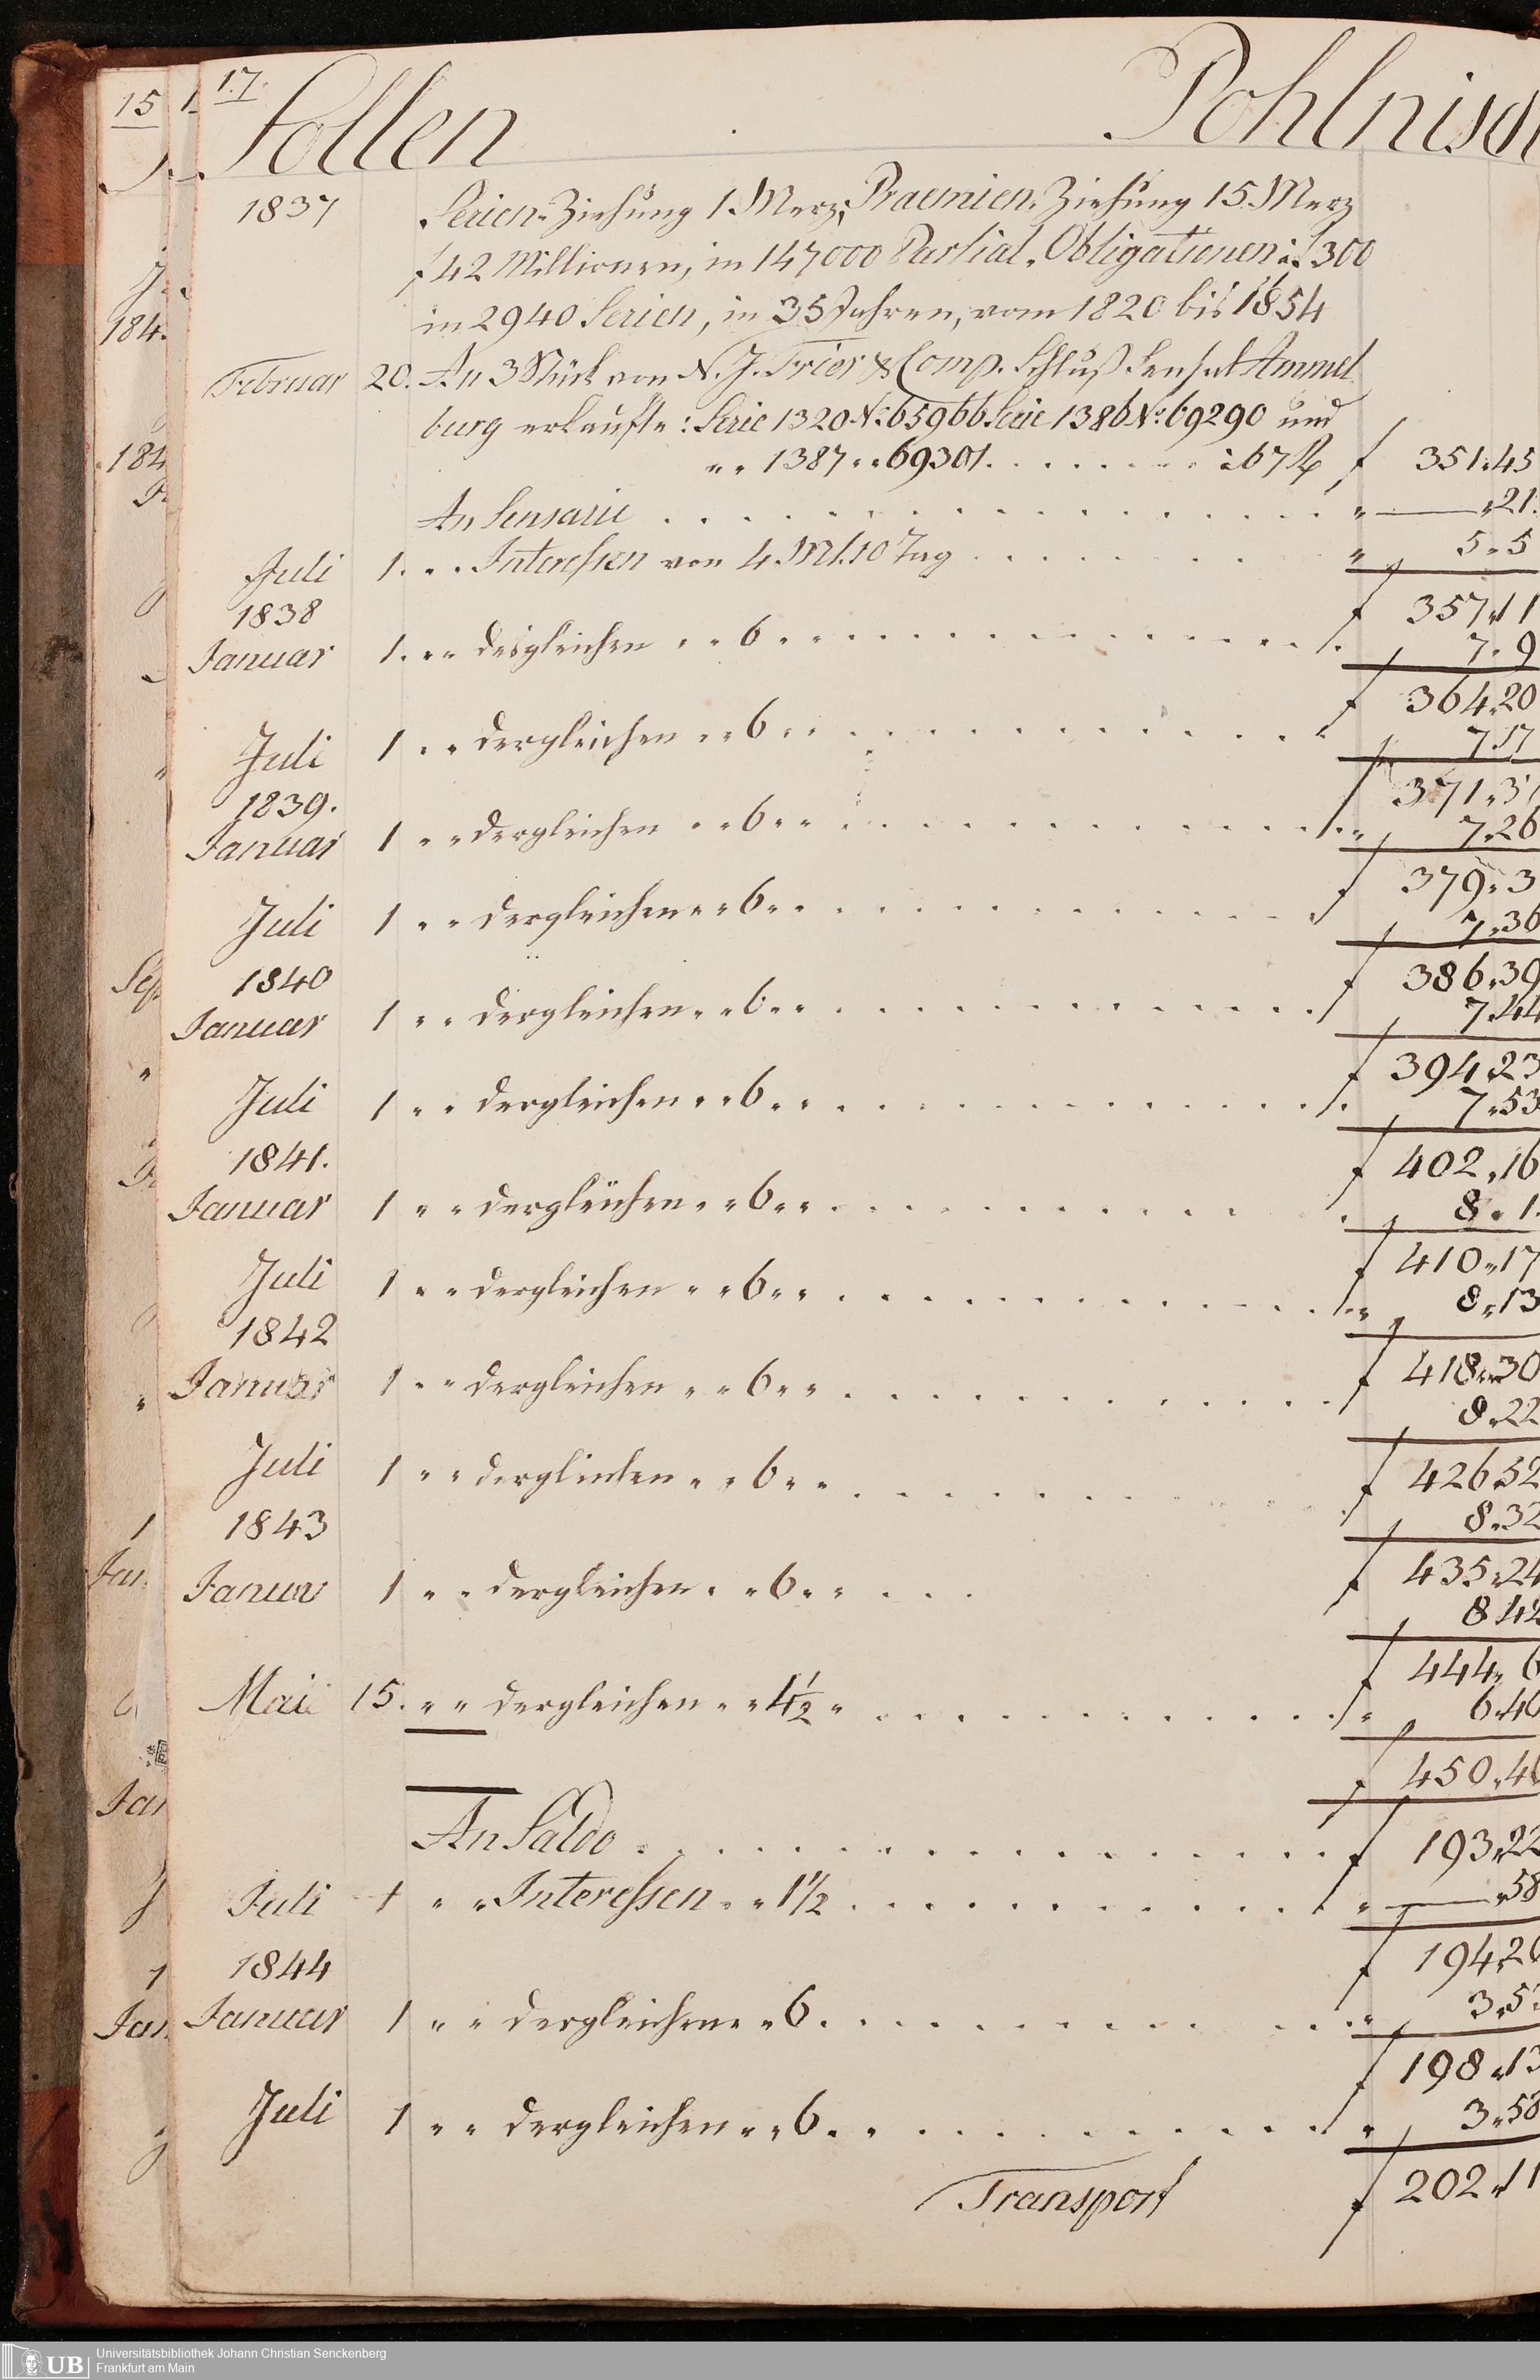 15
17.
Sollen
Pohlnisch
1837
Serien-Ziehung 1. Merz; Praemien-Ziehung 15. Merz
f 42 Millionen, in 147000 Partial-Obligationen à f 300
in 2940 Serien, in 35 Jahren, vom 1820 bis 1854
Februar 20. An 3 Stück von N. J. Trier & Comp. Schluß Sensal Ammel
burg erkaufte: Serie 1320 No 65966 Serie 1386 No 69290 und
" " 1387 " " 69301 . . . . à 67 f 351 " 45
An Sensarie . . . . " — " 21.
Juli 1. " " Interessen von 4 Mt. 10 Tag . . . . " 5 " 5
f 357 " 11
1838
Januar 1. " " desgleichen " " 6 " " . . . . 7 " 9
f 364 " 20
Juli 1 " " dergleichen " " 6 " " . . . . 7 " 17
371 " 37
1839.
Januar 1 " " dergleichen " " 6 " " . . . . " 7 " 26
f 379 " 3
Juli 1 " " dergleichen " " 6 " " . . . . 7 " 36
f 386 " 39
1840
Januar 1 " " dergleichen " " 6 " " . . . . 7 " 44
f 394 " 23
Juli 1 " " dergleichen " " 6 " " . . . . 7 " 53
f 402 " 16
1841.
Januar 1 " " dergleichen " " 6 " " . . . . 8 " 1.
f 410 " 17
Juli 1 " " dergleichen " " 6 " " . . . . " 8 " 13
1842
f 418 " 30
Januar 1 " " dergleichen " " 6 " " . . . . 8 " 22
f 426 " 52
Juli 1 " " dergleichen " " 6 " " . . . . 8 " 32
1843
f 435 " 24
Januar 1 " " dergleichen " " 6 " " . . . 8 " 42
f 444 " 6
Mai 15. " " dergleichen " " 4 1/2 " . . . . " 6 " 40
f 450 " 46
An Saldo . . . . f 193 " 22
Juli 1 " " Interessen " " 1 1/2 . . . . " — " 58
1844
f 194 " 20
Januar 1 " " dergleichen " " 6 . . . . " 3 " 53
f 198 " 13
Juli 1 " " dergleichen " " 6 " " . . . . " 3 " 58
Transport f 202 " 11
UB
Universitätsbibliothek Johann Christian Senckenberg
Frankfurt am Main